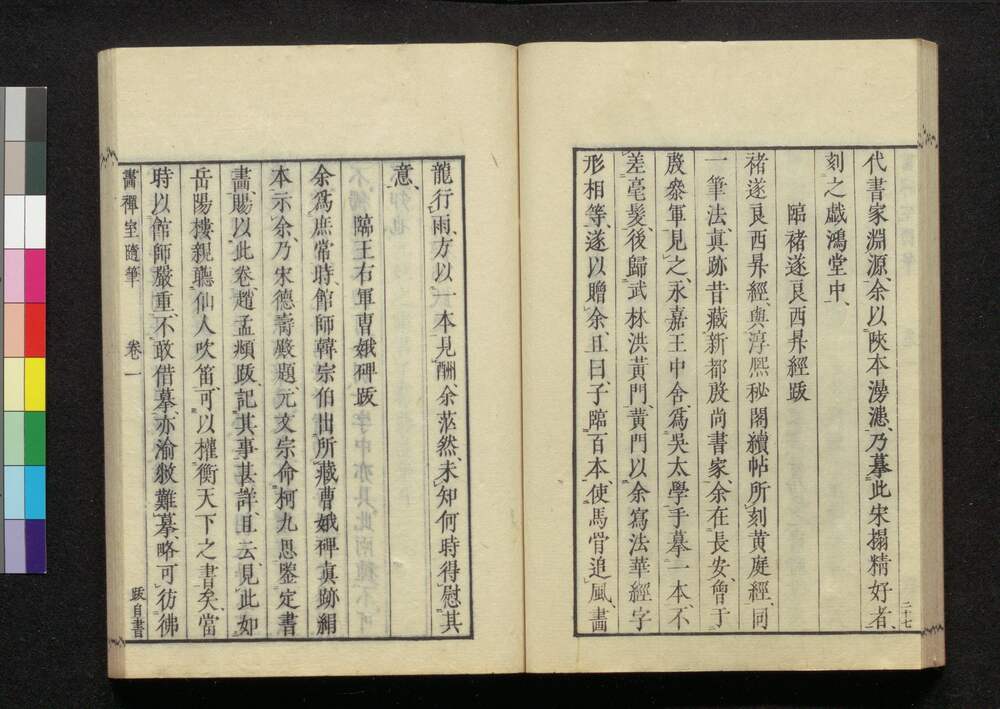 代書家淵源、余以陝本漫漶、乃摹此宋搨精好者、
刻之戲鴻堂中、
臨褚遂良西昇經跋
褚遂良西昇經、與淳熙秘閣續帖所刻黄庭經、同
一筆法、真跡昔藏新都殷尚書家、余在長安、曾于
殷參軍見之、永嘉王中舍、爲吳太學手摹一本、不
差毫髮、後歸武林洪黃門、黃門以余寫法華經字
形相等、遂以贈余、且曰、子臨百本、使馬骨追風、畵
二十七
龍行雨、方以一本見酬、余茫然、未知何時得慰其
意、
臨王右軍曹娥碑跋
余爲庶常時、館師韓宗伯出所藏曹娥碑真跡絹
本示余、乃宋德壽殿題、元文宗命柯九思鑒定書
畵、賜以此卷、趙孟頫跋、記其事甚詳、且云、見此如
岳陽樓親聽仙人吹笛、可以權衡天下之書矣、當
時以館師嚴重、不敢借摹、亦渝敝難摹、略可彷彿
畵禪室隨筆 卷一 跋自書